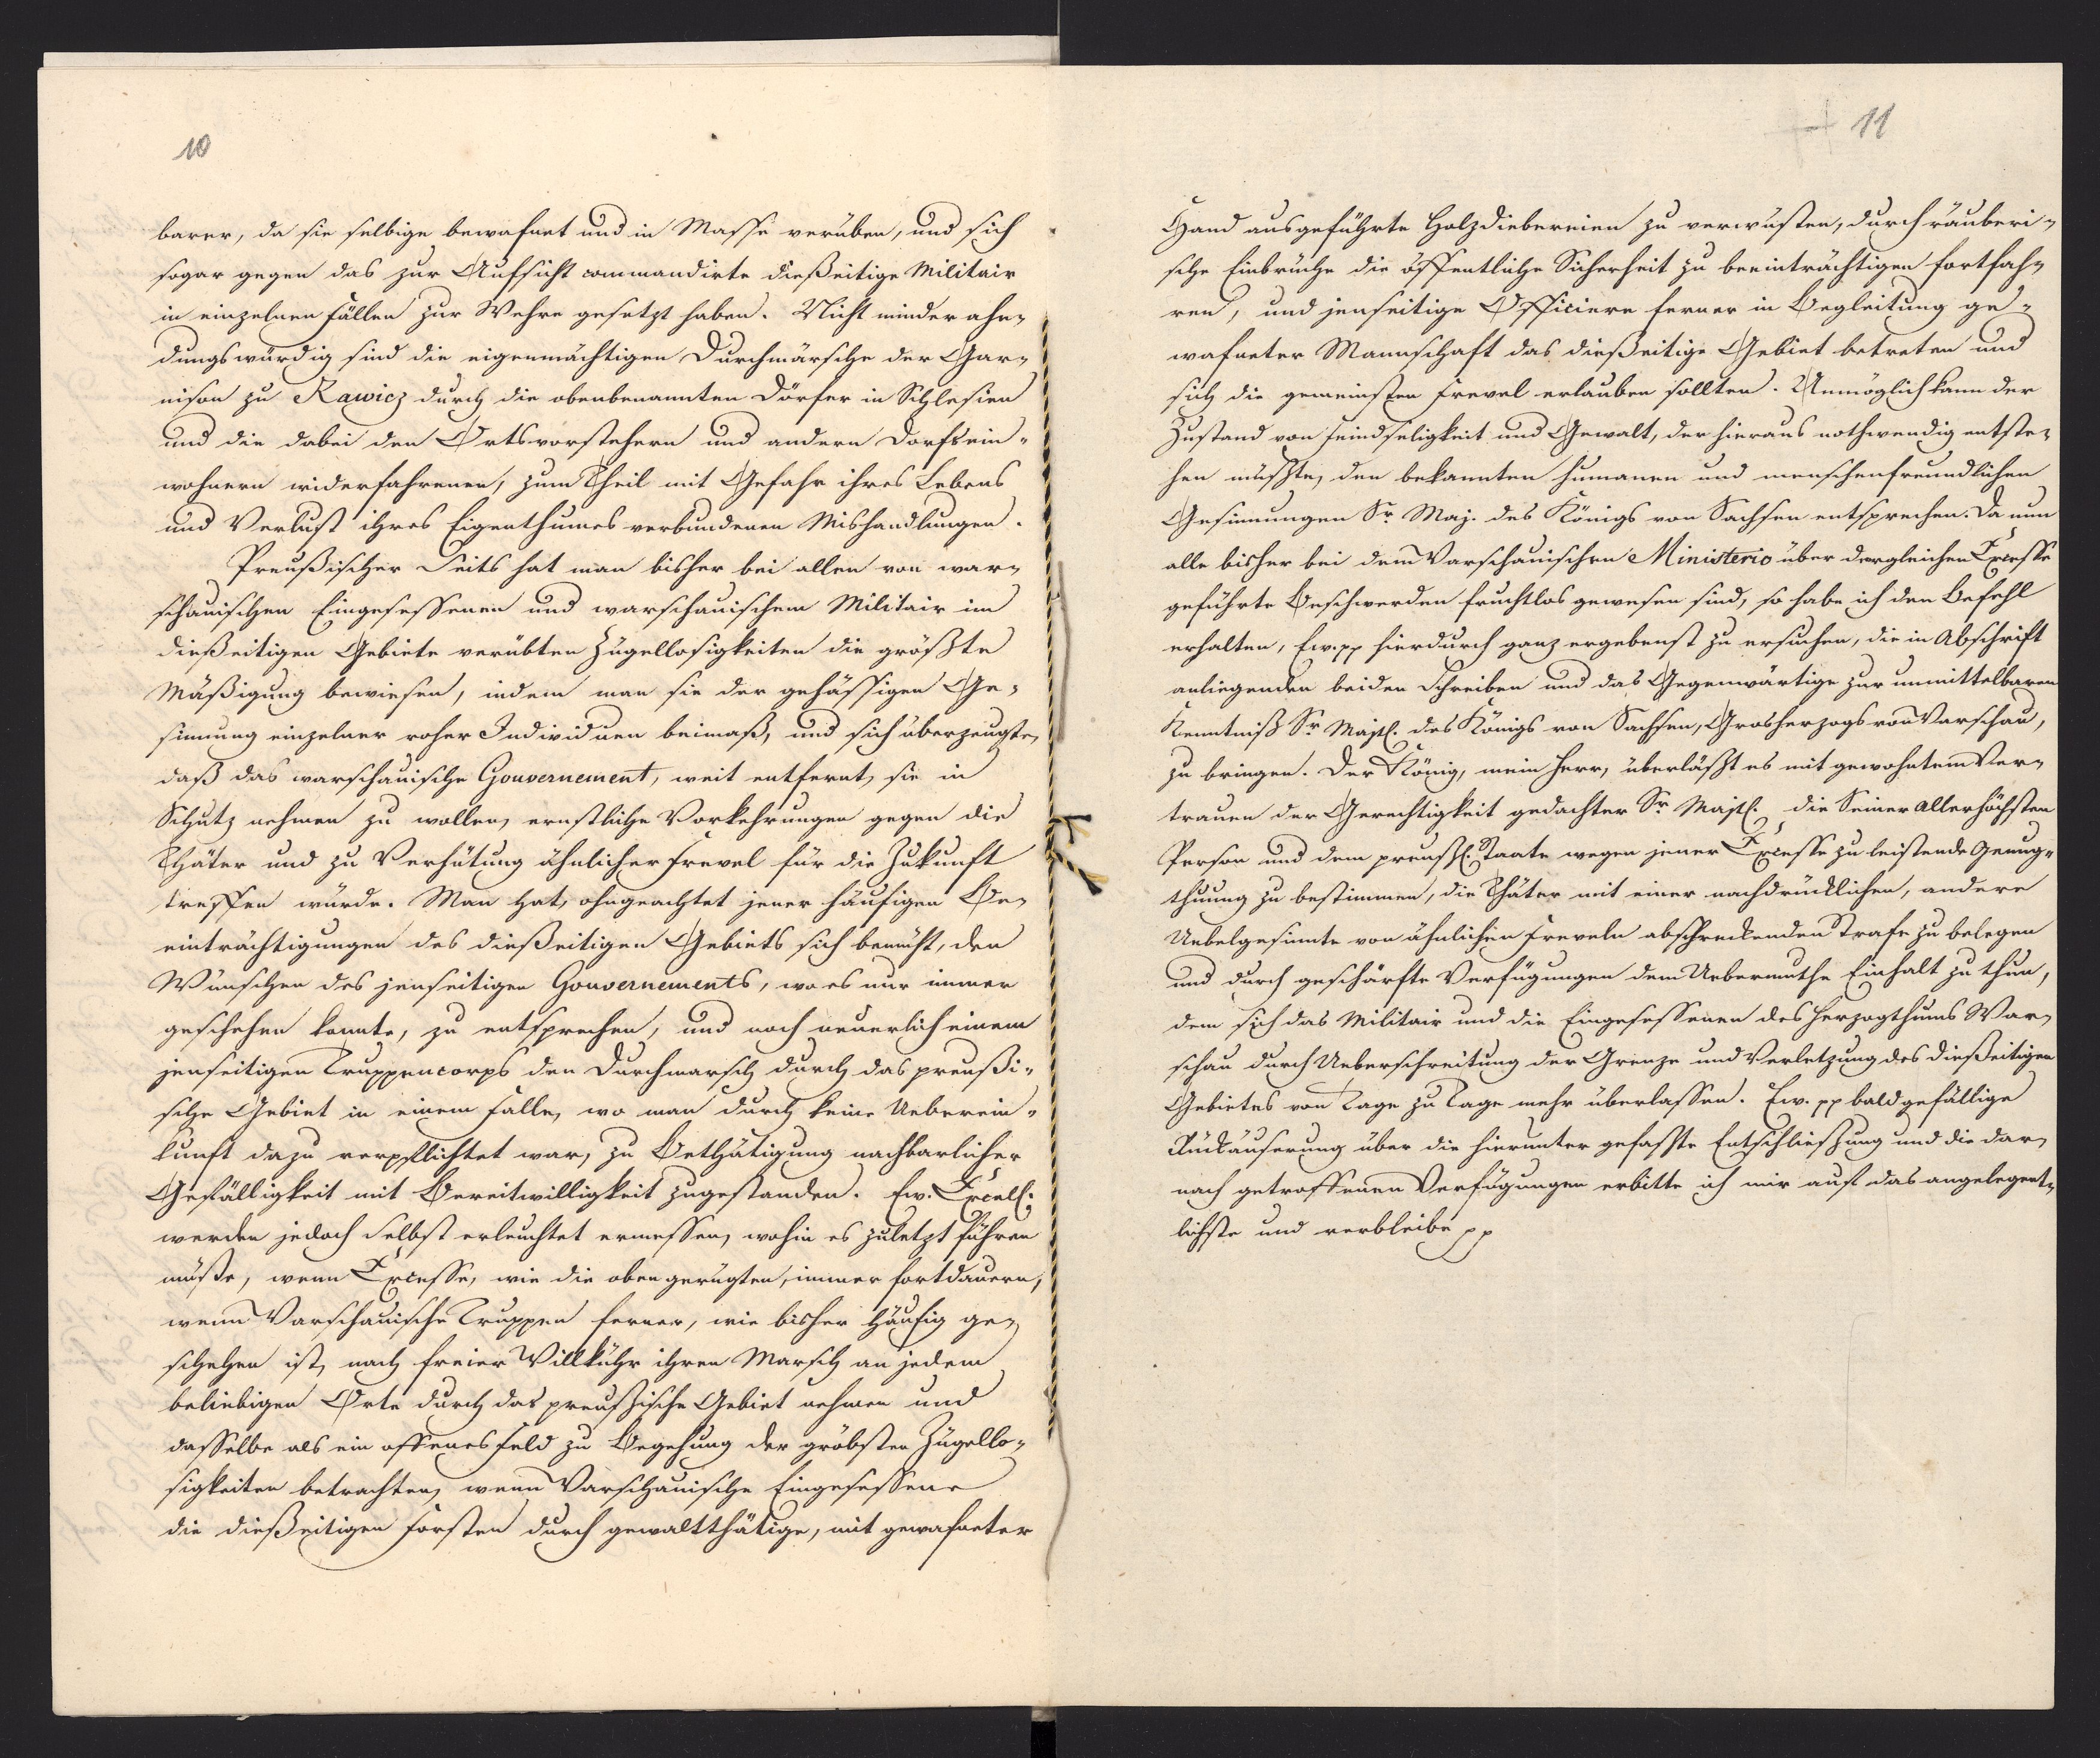 10
barer, da sie selbige bewafnet und in Masse verüben, und sich
sogar gegen das zur Aufsicht commandirte dießeitige Militair
in einzelnen Fällen zur Wehre gesetzt haben. Nicht minder ahn-
dungswürdig sind die eigenmächtigen Durchmärsche der Gar-
nison zu Rawicz durch die obenbenannten Dörfer in Schlesien
und die dabei den Ortsvorstehern und andern Dorfsein-
wohnern widerfahrenen, zum Theil mit Gefahr ihres Lebens
und Verlust ihres Eigenthumes verbundenen Mishandlungen.
Preußischer Seits hat man bisher bei allen von war-
schauischen Eingesessenen und warschauischem Militair im
dießeitigen Gebiete verübten Zügellosigkeiten die größte
Mäßigung bewiesen, indem man sie der gehässigen Ge-
sinnung einzelner roher Individuen beimaß, und sich überzeugte,
daß das warschauische Gouvernement, weit entfernt, sie in
Schutz nehmen zu wollen, ernstliche Vorkehrungen gegen die
Thäter und zu Verhütung ähnlicher Frevel für die Zukunft
treffen würde. Man hat, ohngeachtet jener häufigen Be-
einträchtigungen des dießeitigen Gebiets sich bemüht, den
Wünschen des jenseitigen Gouvernements, wo es nur immer
geschehen konnte, zu entsprechen, und noch neuerlich einem
jenseitigen Truppencorps den Durchmarsch durch das preußi-
sche Gebiet in einem Falle, wo man durch keine Ueberein-
kunft dazu verpflichtet war, zu Bethätigung nachbarlicher
Gefälligkeit mit Bereitwilligkeit zugestanden. Ew. Excell:
werden jedoch selbst erleuchtet ermessen, wohin es zuletzt führen
müße, wenn Excesse, wie die oben gerügten, immer fortdauern,
wenn Warschauische Truppen ferner, wie bisher häufig ge-
schehen ist, nach freier Willkühr ihren Marsch an jedem
beliebigen Orte durch das preußische Gebiet nehmen und
dasselbe als ein offenes Feld zu Begehung der gröbsten Zügello-
sigkeiten betrachten, wenn Warschauische Eingesessene
die dießeitigen Forsten durch gewaltthätige, mit gewafneter
11
Hand ausgeführte Holzdiebereien zu verwüsten, durch räuberi-
sche Einbrüche die öffentliche Sicherheit zu beeinträchtigen fortfah-
ren, und jenseitige Officiere ferner in Begleitung ge-
wafneter Mannschaft das dießeitige Gebiet betreten und
sich die gemeinsten Frevel erlauben sollten. Unmöglich kann der
Zustand von Feindseligkeit und Gewalt, der hieraus nothwendig entste-
hen müßte, den bekannten humanen und menschenfreundlichen
Gesinnungen Sr. Maj. des Königs von Sachsen entsprechen. Da nun
alle bisher bei dem Warschauischen Ministerio über dergleichen Excesse
geführte Beschwerden fruchtlos gewesen sind, so habe ich den Befehl
erhalten, Ew. pp hierdurch ganz ergebenst zu ersuchen, die in Abschrift
anliegenden beiden Schreiben und das Gegenwärtige zur unmittelbaren
Kenntniß Sr. Majst. des Königs von Sachsen, Grosherzogs von Warschau,
zu bringen. Der König, mein Herr, überläßt es mit gewohntem Ver-
trauen der Gerechtigkeit gedachter Sr. Majst. die Seiner allerhöchsten
Person und dem preußl. Staate wegen jener Excesse zu leistende Genug-
thuung zu bestimmen, die Thäter mit einer nachdrücklichen, andere
Uebelgesinnte von ähnlichen Freveln abschreckenden Strafe zu belegen
und durch geschärfte Verfügungen dem Uebermuthe Einhalt zu thun,
dem sich das Militair und die Eingesessenen des Herzogthums War-
schau durch Ueberschreitung der Grenze und Verletzung des dießeitigen
Gebietes von Tage zu Tage mehr überlassen. Ew. pp baldgefällige
Rückäußerung über die hierunter gefaßte Entschließung und die dar-
nach getroffenen Verfügungen erbitte ich mir auf das angelegent-
lichste und verbleibe pp